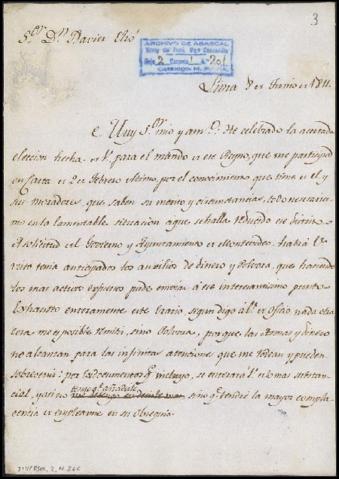 3
Sor. Dn. Xavier Elío
ARCHIVO DE ABASCAL
Lima 8 de Junio de 1811.
Muy Sor. mio y am.º: He celebrado la acertada
eleccion hecha en V. para el mando de ese Reyno, que me participó
en Carta de 2 de Febrero ultimo, por el conocimiento que tiene de el y
sus moradores que saben su merito y circunstancias, todo necesario
en la lamentable situacion a que se halla reducido ese distrito
A solicitud del Govierno y Ayuntamiento de Montevideo, habrá V.
visto tenia anticipados los auxilios de dinero y Polvora, que haciendo
los mas activos esfuerzos pude enviar á ese interesantisimo puerto
Exhausto enteramente este Erario, segun digo á V. de Oficio nada
será me posible remitir, sino Polvora, porque las Armas y dinero
no alcanzan para las infinitas atenciones que me rodean y pueden
sobrevenir: por los documentos q.e incluyo, se enterará V. de lo mas substan-
cial, y asi no tengo q.e añadirle sino q.e tendré la mayor compla-
cencia de emplearme en su Obsequio.
DIVERSOS, 2,